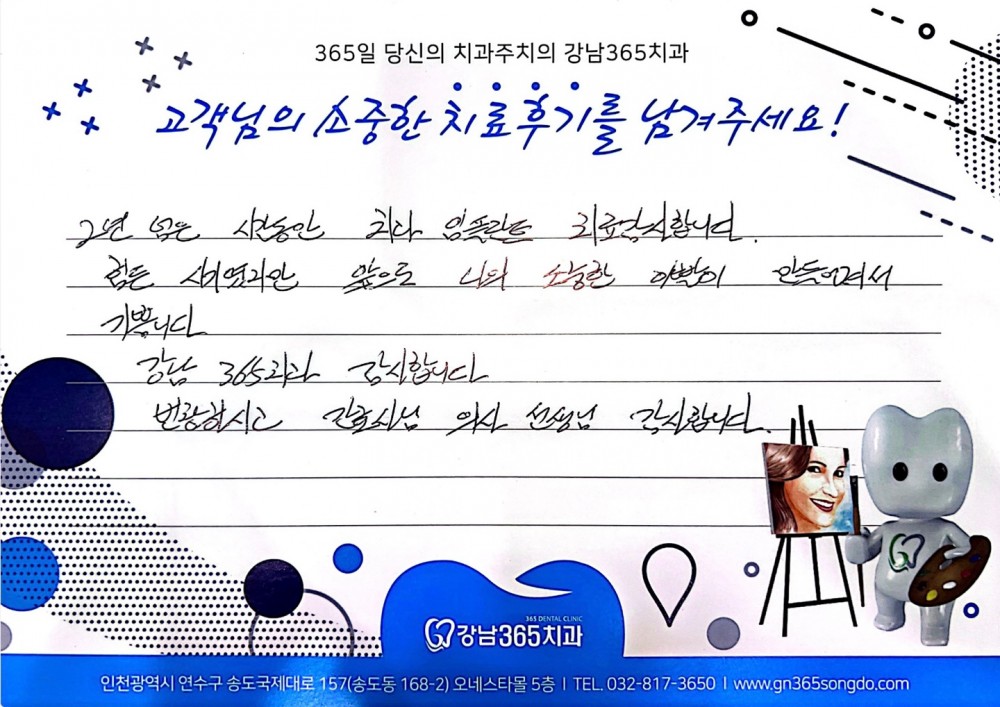 365일 당신의 치과주치의 강남365치과
고객님의 소중한 치료후기를 남겨주세요!
2년 넘은 시간동안 치과 임플란트 치료감사합니다.
힘든 시기였지만 앞으로 나의 소중한 이빨이 만들어져서
기쁩니다
강남 365치과 감사합니다
번창하시고 간호사님 의사 선생님 감사합니다.
365 DENTAL CLINIC
강남365치과
인천광역시 연수구 송도국제대로 157(송도동 168-2) 오네스타몰 5층 l TEL. 032-817-3650 l www.gn365songdo.com